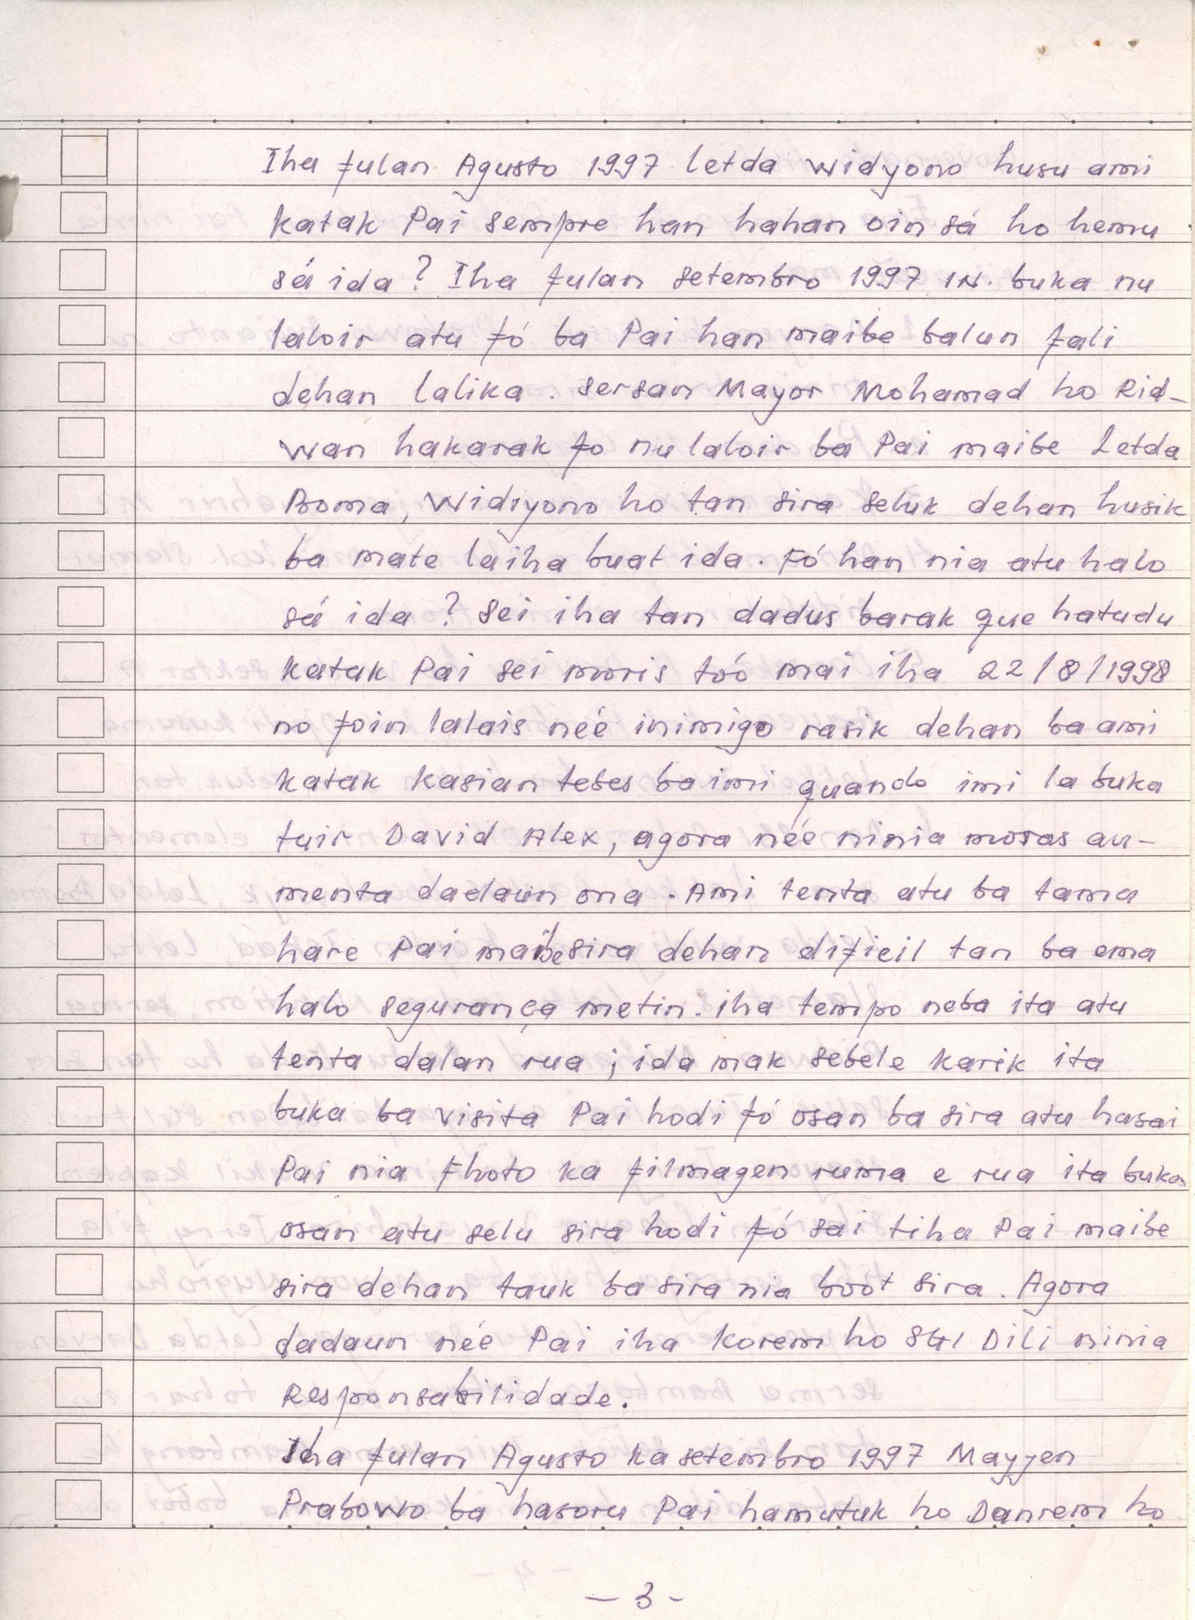 Iha fulan Agusto 1997 letda widyono husu ami
katak Pai sempre han hahan oin sá ho hemu
sá ida? Iha fulan setembro 1997 IN. buka nu
laloir atu fó ba Pai han maibe balun fali
dehan lalika. sersan Mayor Mohamad ho Rid-
wan hakarak fo nu laloir ba Pai maibe Letda
Boma, Widiyono ho tan sira seluk dehan husik
ba mate la iha buat ida. Fó han nia atu halo
sá ida? sei iha tan dadus barak que hatudu
katak Pai sei moris tóo mai iha 22/8/1998
no foin lalais neé inimigo rasik dehan ba ami
katak kasian tebes ba imi quando imi la buka
tuir David Alex, agora neé ninia moras au-
menta dadaun ona. Ami tenta atu ba tama
hare Pai maibe sira dehan dificil tan ba ema
halo segurança metin. iha tempo neba ita atu
tenta dalan rua; ida mak sebele karik ita
buka ba visita Pai hodi fó osan ba sira atu hasai
Pai nia Fhoto ka filmagen ruma e rua ita buka
osan atu selu sira hodi fó sai tiha Pai maibe
sira dehan tauk ba sira nia boot sira. Agora
dadaun neé Pai iha Korem ho SGI Dili ninia
Responsabilidade.
Iha fulan Agusto ka setembro 1997 Mayjen
Prabowo ba hasoru Pai hamutuk ho Danrem ho
- 3 -